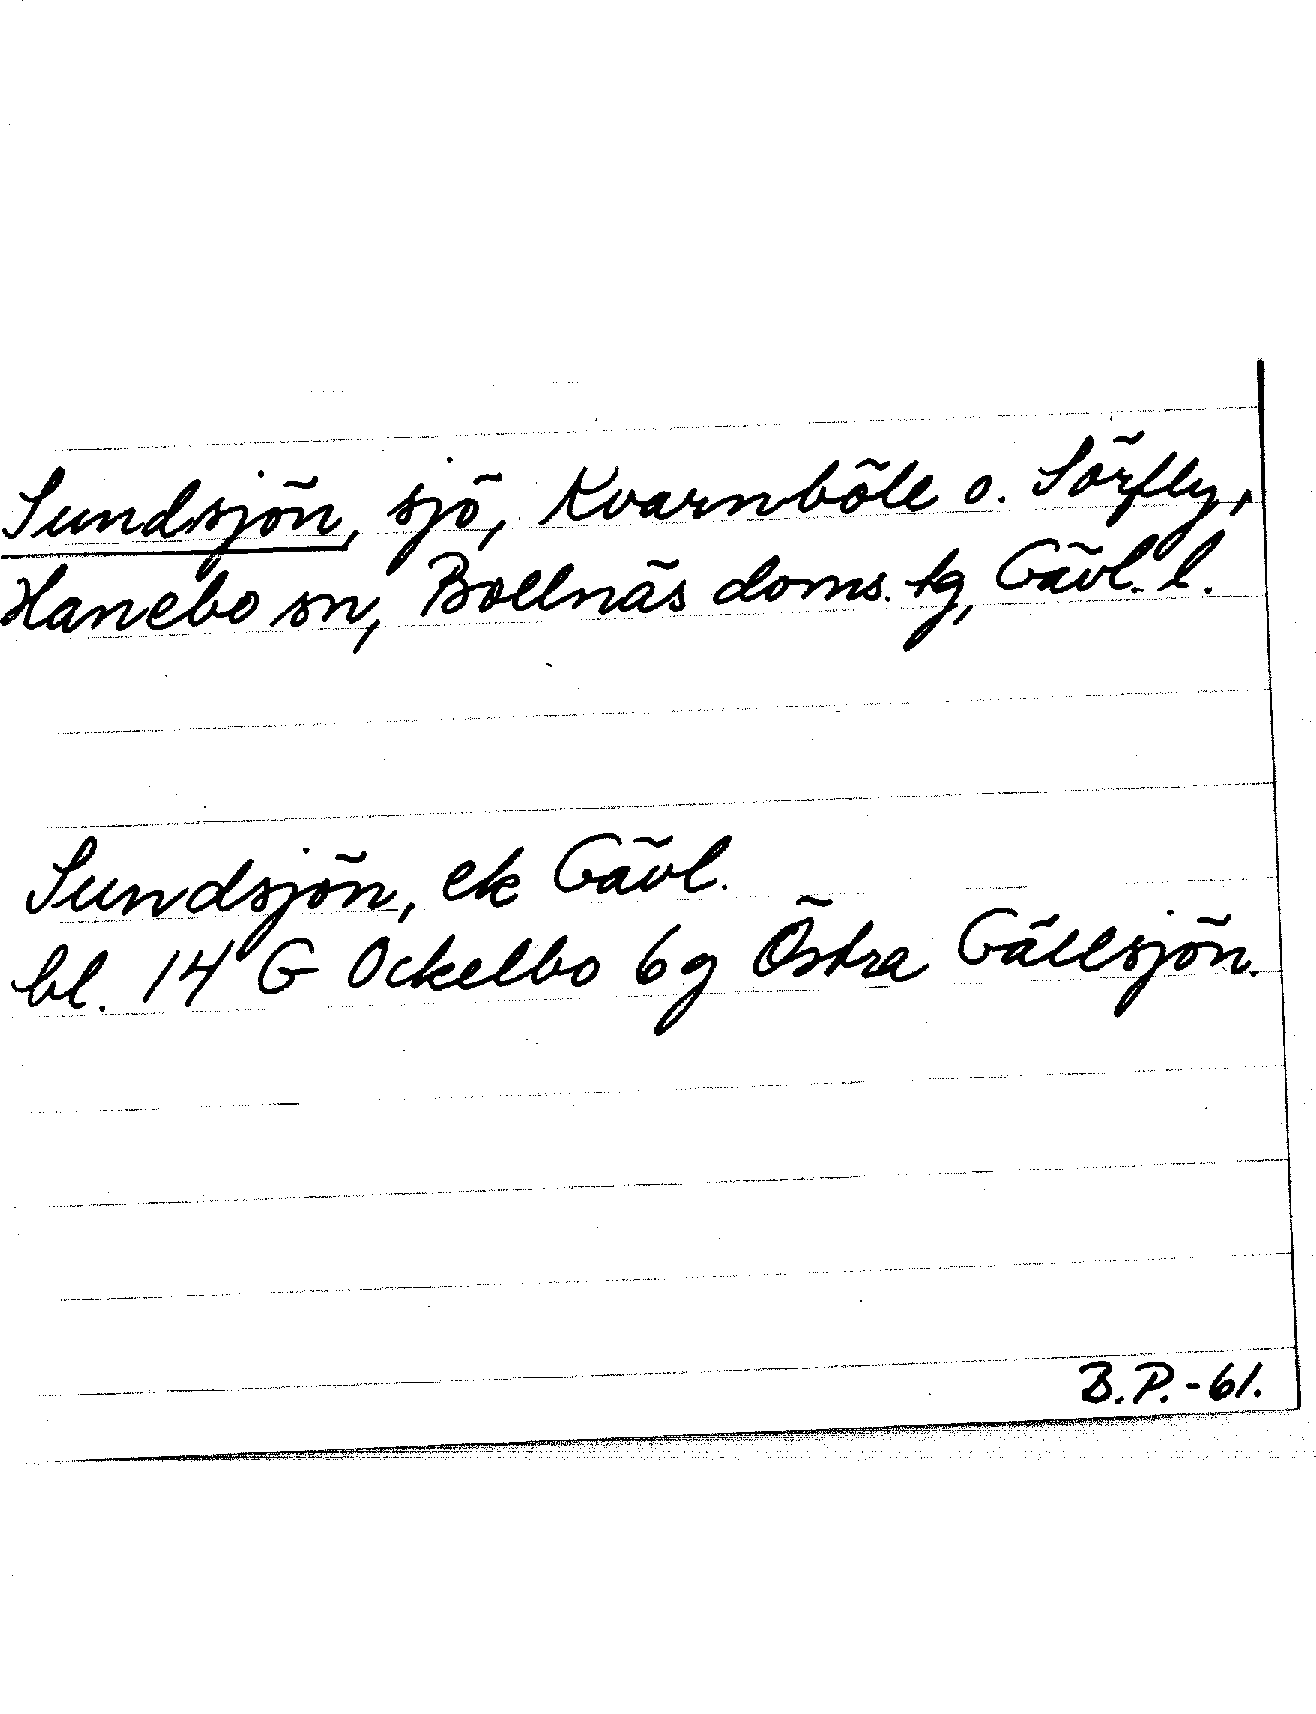 Sundsjön, sjö, Kvarnböle o. Sörfly,
Hanebo sn, Bollnäs doms. tg, Gävl. l.
Sundsjön, ek Gävl.
bl. 14 G Ockelbo 6g Östra Gällsjön.
B.P.-61.